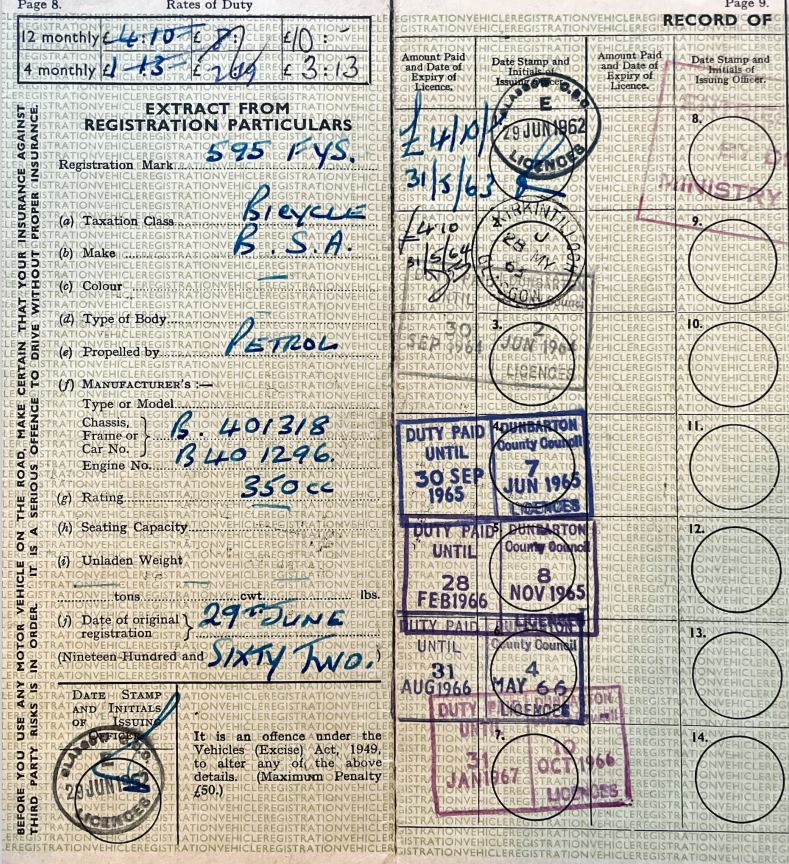 Page 8.
Rates of Duty
12 monthly £4:10:- £8: £10:-
4 monthly £1-13- £ £3:13
EXTRACT FROM
REGISTRATION PARTICULARS
Registration Mark 595 FYS.
(a) Taxation Class Bicycle
(b) Make B.S.A.
(c) Colour —
(d) Type of Body
(e) Propelled by PETROL
(f) MANUFACTURER'S :—
Type or Model
Chassis,
Frame or } B. 401318
Car No.
Engine No. B40 1296.
(g) Rating 350cc
(h) Seating Capacity —
(i) Unladen Weight
— tons — cwt. — lbs.
(j) Date of original } 29TH JUNE
registration
(Nineteen Hundred and SIXTY TWO.)
DATE STAMP
AND INITIALS
OF ISSUING
OFFICER
GLASGOW C.R.O.
E
29 JUN 1962
LICENCES
It is an offence under the
Vehicles (Excise) Act, 1949,
to alter any of the above
details. (Maximum Penalty
£50.)
BEFORE YOU USE ANY MOTOR VEHICLE ON THE ROAD, MAKE CERTAIN THAT YOUR INSURANCE AGAINST
THIRD PARTY RISKS IS IN ORDER. IT IS A SERIOUS OFFENCE TO DRIVE WITHOUT PROPER INSURANCE.
Page 9.
RECORD OF
Amount Paid
and Date of
Expiry of
Licence.
Date Stamp and
Initials of
Issuing Officer.
Amount Paid
and Date of
Expiry of
Licence.
Date Stamp and
Initials of
Issuing Officer.
£4/10/-
31/5/63
GLASGOW C.R.O.
E
29 JUN 1962
LICENCES
£4 10
31/5/64
KIRKINTILLOCH
J
28 MY
63
GLASGOW
DUTY
UNTIL
30
SEP 1964
3.
DUNBARTON
County Council
2
JUN 1964
LICENCES
DUTY PAID
UNTIL
30 SEP
1965
4.
DUNBARTON
County Council
7
JUN 1965
LICENCES
DUTY PAID
UNTIL
28
FEB 1966
5.
DUNBARTON
County Council
8
NOV 1965
LICENCES
DUTY PAID
UNTIL
31
AUG 1966
6.
County Council
4
MAY 66
LICENCES
DUTY
UNTIL
31
JAN 1967
7.
10
OCT 1966
LICENCES
8.
MINISTRY
9.
10.
11.
12.
13.
14.